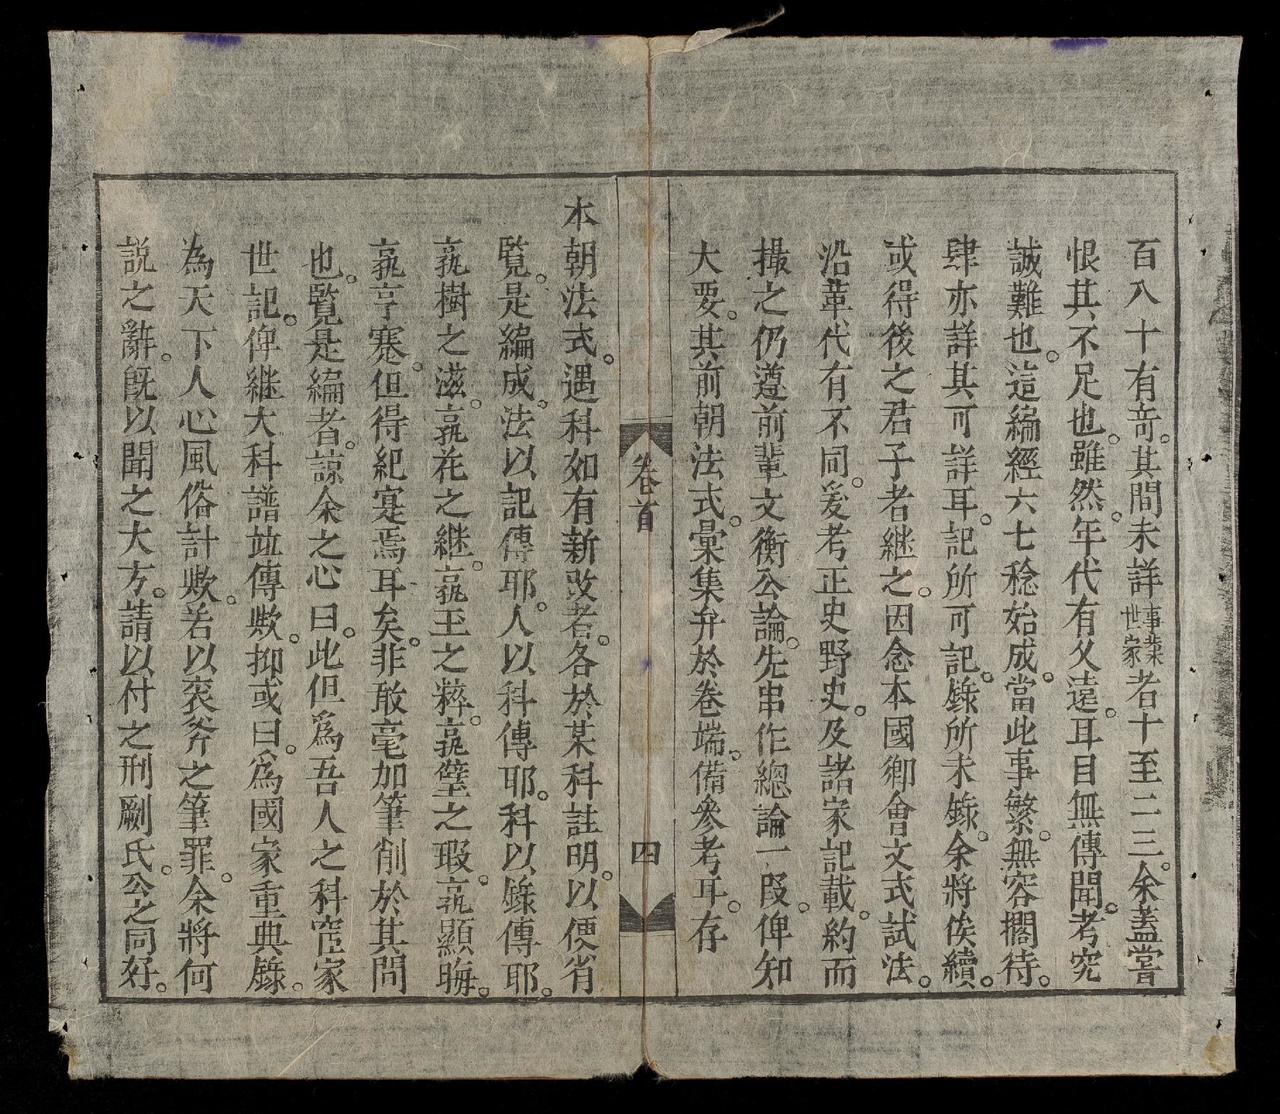 百八十有竒。其間未詳事業世家者十至二三。余蓋嘗
恨其不足也。雖然。年代有久遠。耳目無傳聞。考究
誠難也。這編經六七稔始成。當此事繁。無容擱待。
肆亦詳其可詳耳。記所可記。錄所未錄。余將俟續。
或得後之君子者継之。因念本國鄉會文式試法。
沿革代有不同。爰考正史野史。及諸家記載。約而
撮之仍遵前輩文衡公論。先串作總論一段。俾知
大要。其前朝法式。彙集弁於卷端。備參考耳。存
卷首
四
本朝法式。遇科如有新改者。各於某科註明。以便省
覧。是編成。法以記傳耶。人以科傳耶。科以錄傳耶。
孰樹之滋。孰花之継。孰玉之粹。孰璧之瑕。孰顯晦。
孰亨蹇。但得紀寔焉耳矣。非敢毫加筆削於其間
也。覧是編者。諒余之心曰。此但爲吾人之科宦家
世記。俾継大科譜竝傳歟。抑或曰。爲國家重典錄。
為天下人心風俗計歟。若以衮斧之筆罪。余將何
説之辭。旣以聞之大方。請以付之刑劂氏。公之同好。